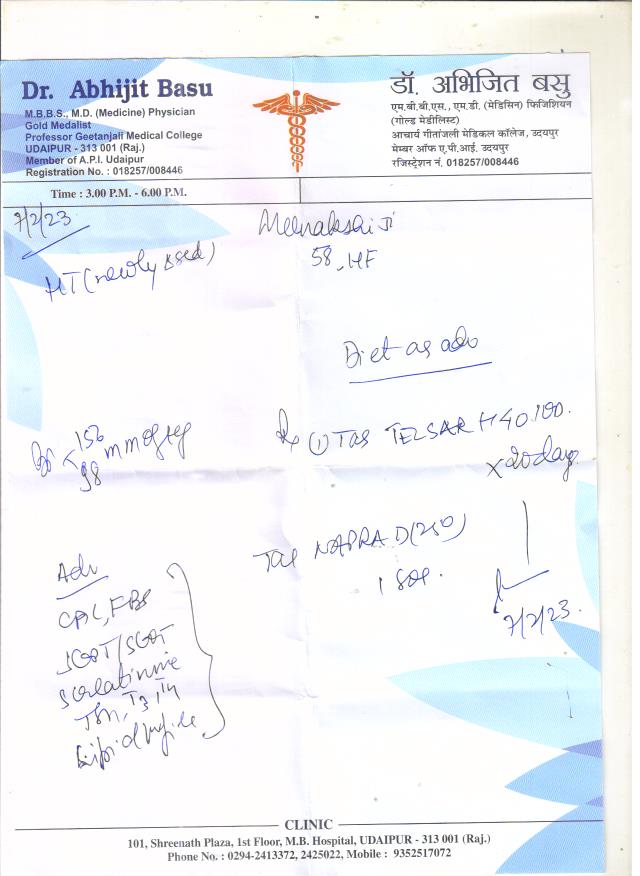 Dr. Abhijit Basu
M.B.B.S., M.D. (Medicine) Physician
Gold Medalist
Professor Geetanjali Medical College
UDAIPUR - 313 001 (Raj.)
Member of A.P.I. Udaipur
Registration No. : 018257/008446
Time : 3.00 P.M. - 6.00 P.M.
डॉ. अभिजित बसु
एम.बी.बी.एस., एम.डी. (मेडिसिन) फिजिशियन
(गोल्ड मेडीलिस्ट)
आचार्य गीतांजली मेडिकल कॉलेज, उदयपुर
मेम्बर ऑफ ए.पी.आई. उदयपुर
रजिस्ट्रेशन नं. 018257/008446
7/2/23
Meenakshi Ji
58,
HT (newly
Diet as adv
156
98 mm of Hg
Rx ① Tab TELSAR H 40
x 20 days
Tab NAPRA D (250)
1 SOS.
7/2/23.
Adv
CBC, FBS
SGOT/
S creatinine
TSH, T3, T4
Lipid profile
CLINIC
101, Shreenath Plaza, 1st Floor, M.B. Hospital, UDAIPUR - 313 001 (Raj.)
Phone No. : 0294-2413372, 2425022, Mobile : 9352517072